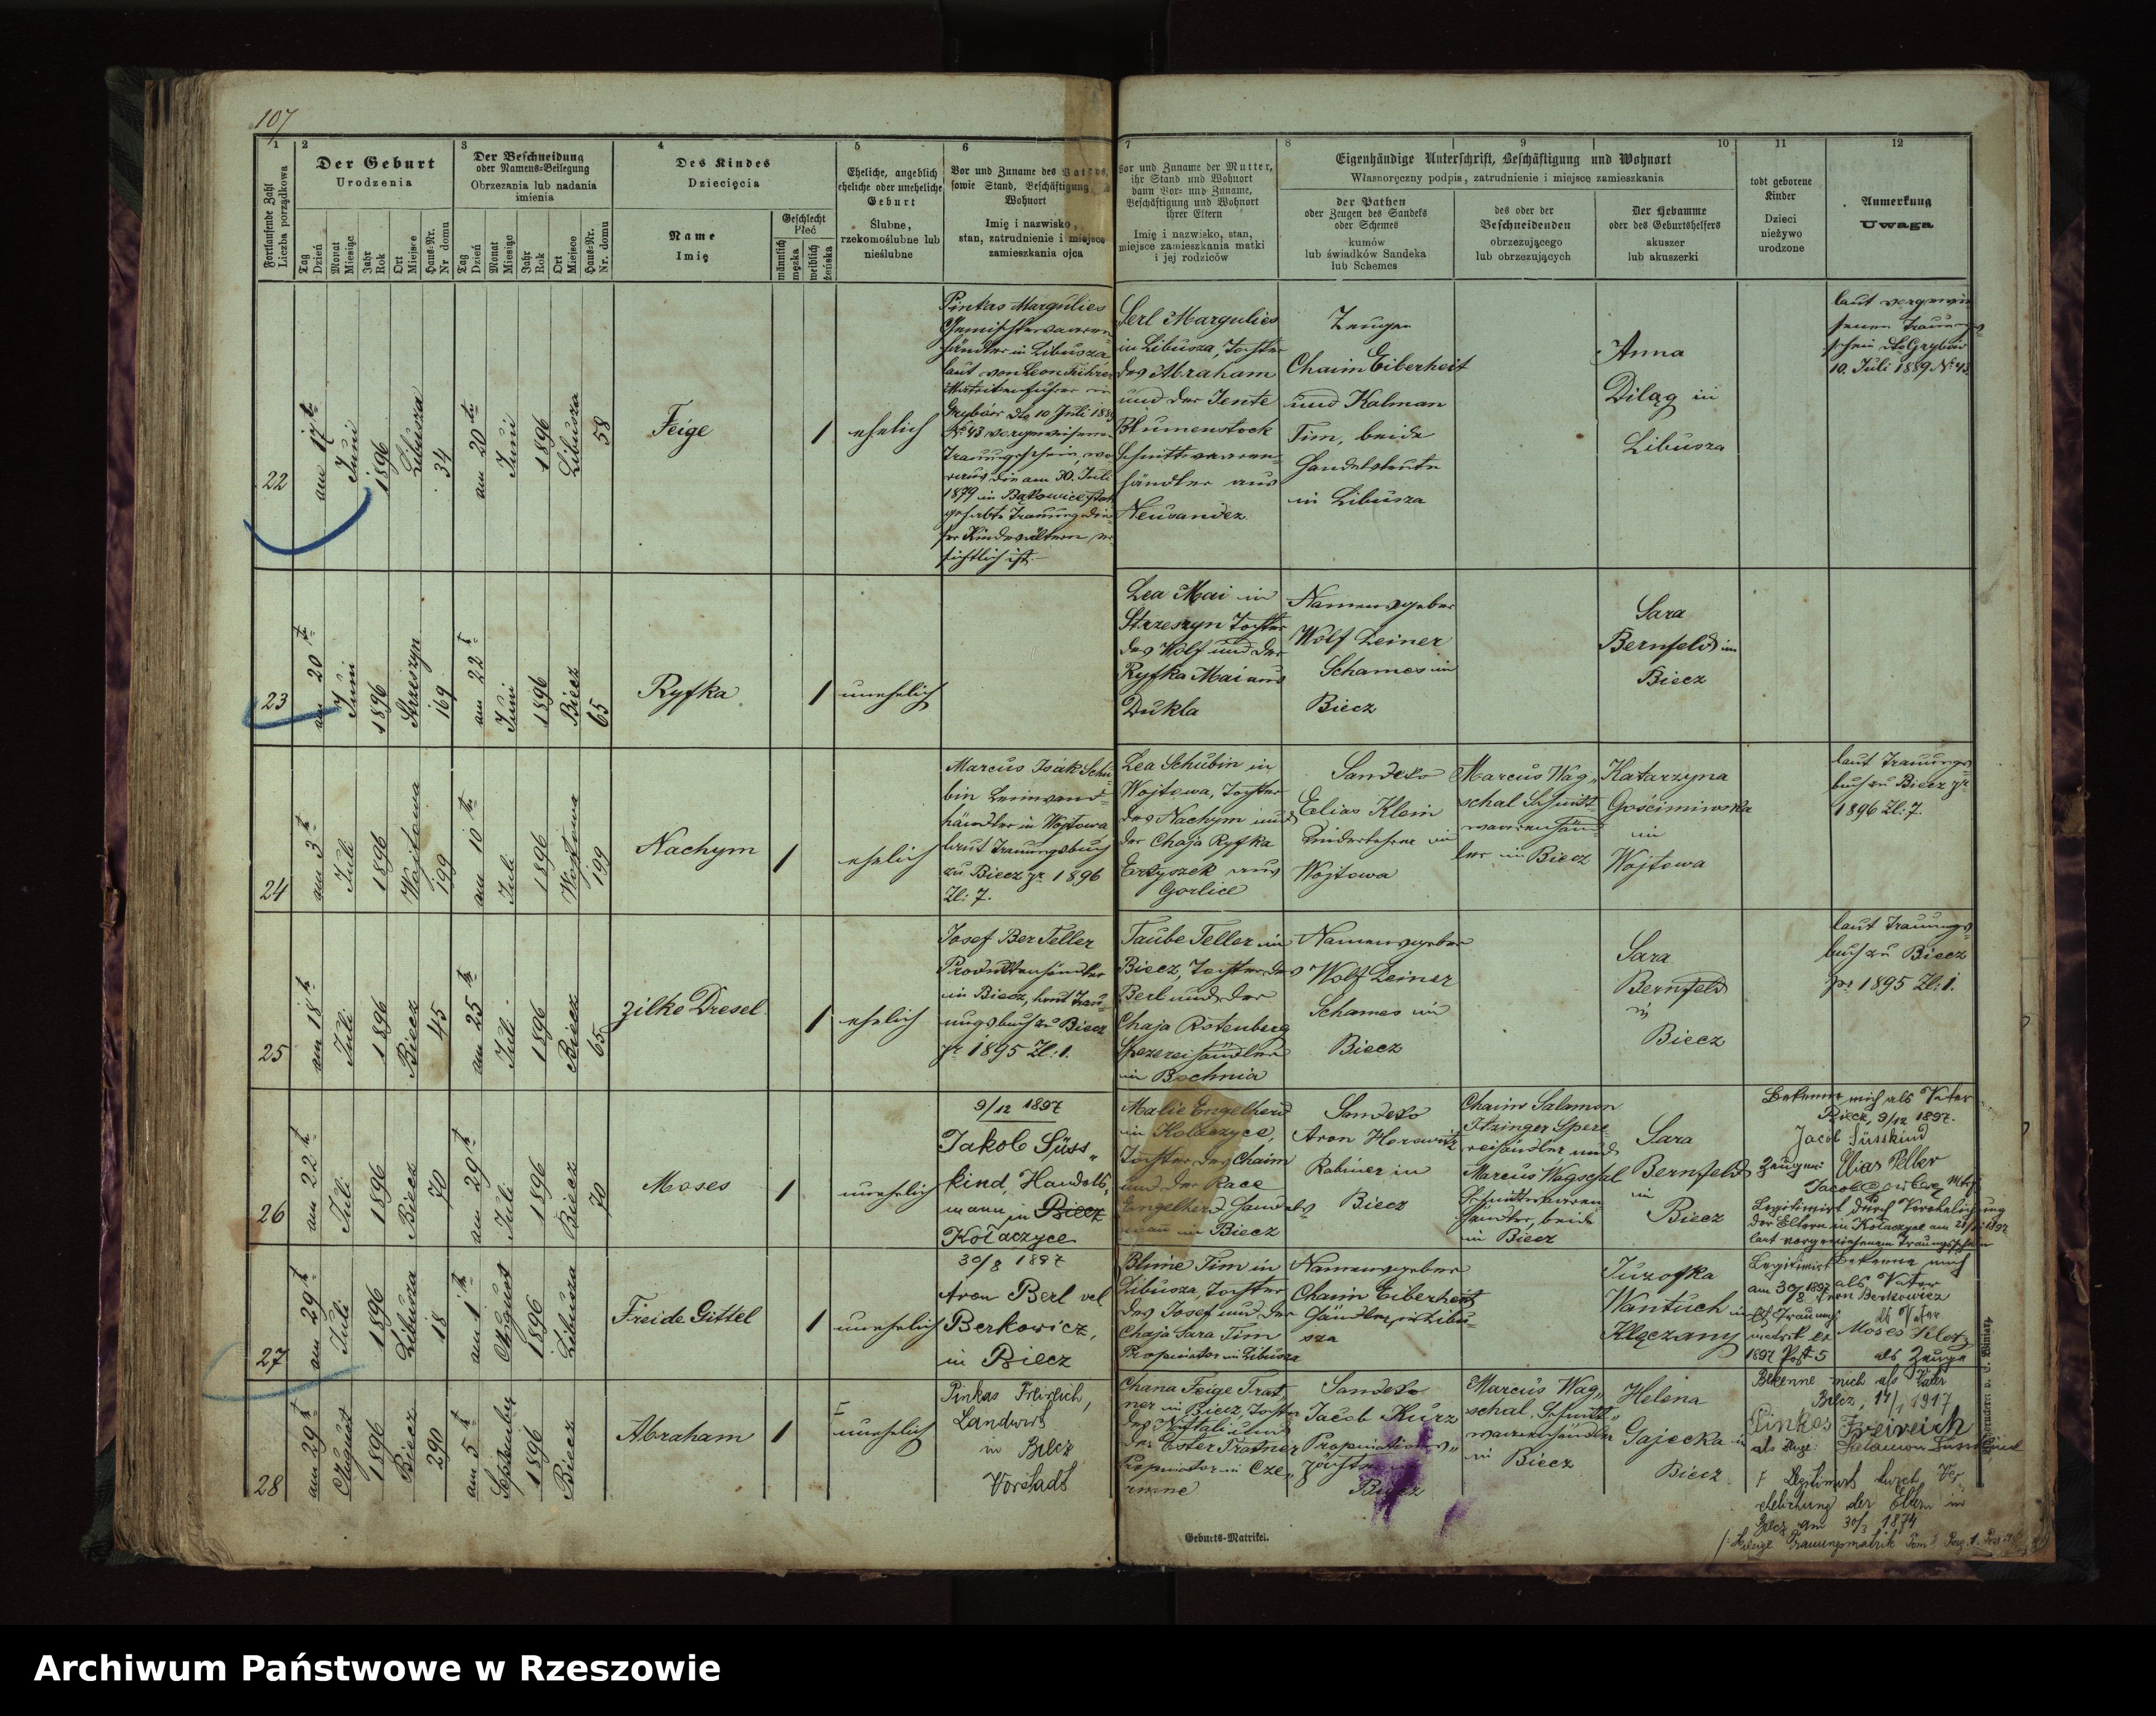 107
1
2
3
4
5
6
7
8
9
10
11
12
Fortlaufende Zahl
Liczba porządkowa
Der Geburt
Urodzenia
Tag
Dzień
Monat
Miesiąc
Jahr
Rok
Ort
Miejsce
Haus-Nr.
Nr domu
Der Beschneidung
oder Namens-Beilegung
Obrzezania lub nadania
imienia
Tag
Dzień
Monat
Miesiąc
Jahr
Rok
Ort
Miejsce
Haus-Nr.
Nr. domu
Des Kindes
Dziecięcia
Name
Imię
Geschlecht
Płeć
männlich
męska
weiblich
żeńska
Eheliche, angeblich
eheliche oder uneheliche
Geburt
Ślubne,
rzekomoślubne lub
nieślubne
Vor und Zuname des Vaters,
sowie Stand, Beschäftigung
Wohnort
Imię i nazwisko,
stan, zatrudnienie i miejsce
zamieszkania ojca
Vor und Zuname der Mutter,
ihr Stand und Wohnort
dann Vor- und Zuname,
Beschäftigung und Wohnort
ihrer Eltern
Imię i nazwisko, stan,
miejsce zamieszkania matki
i jej rodziców
Eigenhändige Unterschrift, Beschäftigung und Wohnort
Własnoręczny podpis, zatrudnienie i miejsce zamieszkania
der Pathen
oder Zeugen des Sandeks
oder Schemes
kumów
lub świadków Sandeka
lub Schemes
des oder der
Beschneidenden
obrzezującego
lub obrzezujących
Der Hebamme
oder des Geburtshelfers
akuszer
lub akuszerki
todt geborene
Kinder
Dzieci
nieżywo
urodzone
Anmerkung
Uwaga
22
am 17t
Juni
1896
Libusza
34
am 20t
Juni
1896
Libusza
58
Feige
1
ehelich
Pinkas Margulies
Gemischtwaaren-
händler in Libusza
laut von Leon Führer
Matrikenführer in
Grybów dto 10 Juli 1889
No 43 vorgewiesenen
Trauungsschein, wo-
raus die am 30. Juli
1879 in
gehabte Trauung die-
ser Kindesältern er-
sichtlich ist.
Serl Margulies
in Libusza, Tochter
des Abraham
und der Jente
Blumenstock
Schnittwaaren-
händler aus
Neusandez
Zeugen
Chaim Eiberheit
und Kalman
Tim, beide
Handelsleute
in Libusza
Anna
Diląg in
Libusza
laut vorgewie-
senen Trauungs-
schein dto Grybów
10. Juli 1889 No 43
23
am 20t
Juni
1896
Strzeszyn
169
am 22t
Juni
1896
Biecz
65
Ryfka
1
unehelich
Lea Mai in
Strzeszyn Tochter
des Wolf und der
Ryfka Mai aus
Dukla
Namensgeber
Wolf Leiner
Schames in
Biecz
Sara
Bernfeld in
Biecz
24
am 3t
Juli
1896
Wojtowa
199
am 10t
Juli
1896
Wojtowa
199
Nachym
1
ehelich
Marcus Isak Schu-
bin Leinwand-
händler in Wojtowa
laut Trauungsbuch
zu Biecz pr 1896
Zl: 7.
Lea Schubin in
Wojtowa, Tochter
des Nachym und
der Chaja Ryfka
aus
Gorlice
Sandeko
Elias Klein
Kinderlehrer in
Wojtowa
Marcus Wag-
schal Schnitt-
waarenhänd-
ler in Biecz
Katarzyna
Gościmiwska
in
Wojtowa
laut Trauungs-
buch zu Biecz pr
1896 Zl: 7.
25
am 18t
Juli
1896
Biecz
45
am 25t
Juli
1896
Biecz
65
Zilke Dresel
1
ehelich
Josef Ber Teller
Produktenhändler
in Biecz, laut Trau-
ungsbuch zu Biecz
pr 1895 Zl: 1.
Taube Teller in
Biecz, Tochter des
Berl und der
Chaja Rotenberg
Spezereihändler
in Bochnia
Namensgeber
Wolf Leiner
Schames in
Biecz
Sara
Bernfeld
in
Biecz
laut Trauungs-
buch zu Biecz
pr 1895 Zl: 1.
26
am 22t
Juli
1896
Biecz
70
am 29t
Juli
1896
Biecz
70
Moses
1
unehelich
9/12 1897
Jakob Süss-
kind, Handels-
mann in Biecz
Kołaczyce
Malie Engelherd
in Kołaczyce,
Tochter des Chaim
und der Race
Engelherd Handels-
mann in Biecz
Sandeko
Aron Horowitz
Rabiner in
Biecz
Chaim Salamon
Itzinger Speze-
reihändler und
Marcus Wagschal
Schnittwaaren
händler, beide
in Biecz
Sara
Bernfeld
in
Biecz
Bekenne mich als Vater
Biecz, 9/12 1897.
Jacob Süsskind
Zeugen: Elias Peller
Legitimirt durch Verehelichung
der Eltern in Kołaczyce am
laut vorgewiesenem Trauungsschein
27
am 29t
Juli
1896
Libusza
18
am 1t
August
1896
Libusza
Freide Gittel
1
unehelich
30/8 1897
Aron Berl vel
Berkowicz,
in Biecz
Blime Tim in
Libusza, Tochter
des Josef und der
Chaja Sara Tim
Propinator in Libusza
Namensgeber
Chaim Eiberheit
Händler in Libu-
sza
Juzofka
Wantuch in
Klęczany
Legitimirt
am 30/8 1897
lt Trauungs
matrik ex
1897 Post 5
Bekenne mich
als Vater
Aron Berkowicz
als Vater
Moses Klotz
als Zeuge
28
am 29t
August
1896
Biecz
290
am 5t
September
1896
Biecz
Abraham
1
unehelich
Pinkas Freireich,
Landwirt
in Biecz
Vorstadt
Chana Feige Trat-
ner in Biecz, Tochter
des Naftali und
der Ester Tratner
Propinator in Cze-
rmne
Sandeko
Jacob Kurz
Propinations-
pächter in
Biecz
Marcus Wag-
schal, Schnitt-
waarenhändler
in Biecz
Helena
Gajecka in
Biecz
Bekenne mich als Vater
Biecz, 17/1 1917
Pinkas Freireich
als Zeuge:
Legitimirt durch Ver-
ehelichung der Eltern in
Biecz am 30/3 1874
Geburts-Matrikel.
Archiwum Państwowe w Rzeszowie